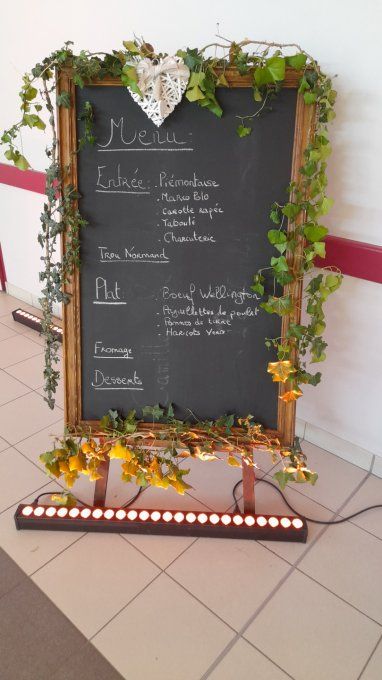 Menu
Entrée: . Piémontaise
. Marco Polo
. Carotte rapée
. Taboulé
. Charcuterie
Trou Normand
Plat: . Boeuf Wellington
. Aiguillettes de poulet
. Pommes de terre
. Haricots Verts
Fromage
Desserts